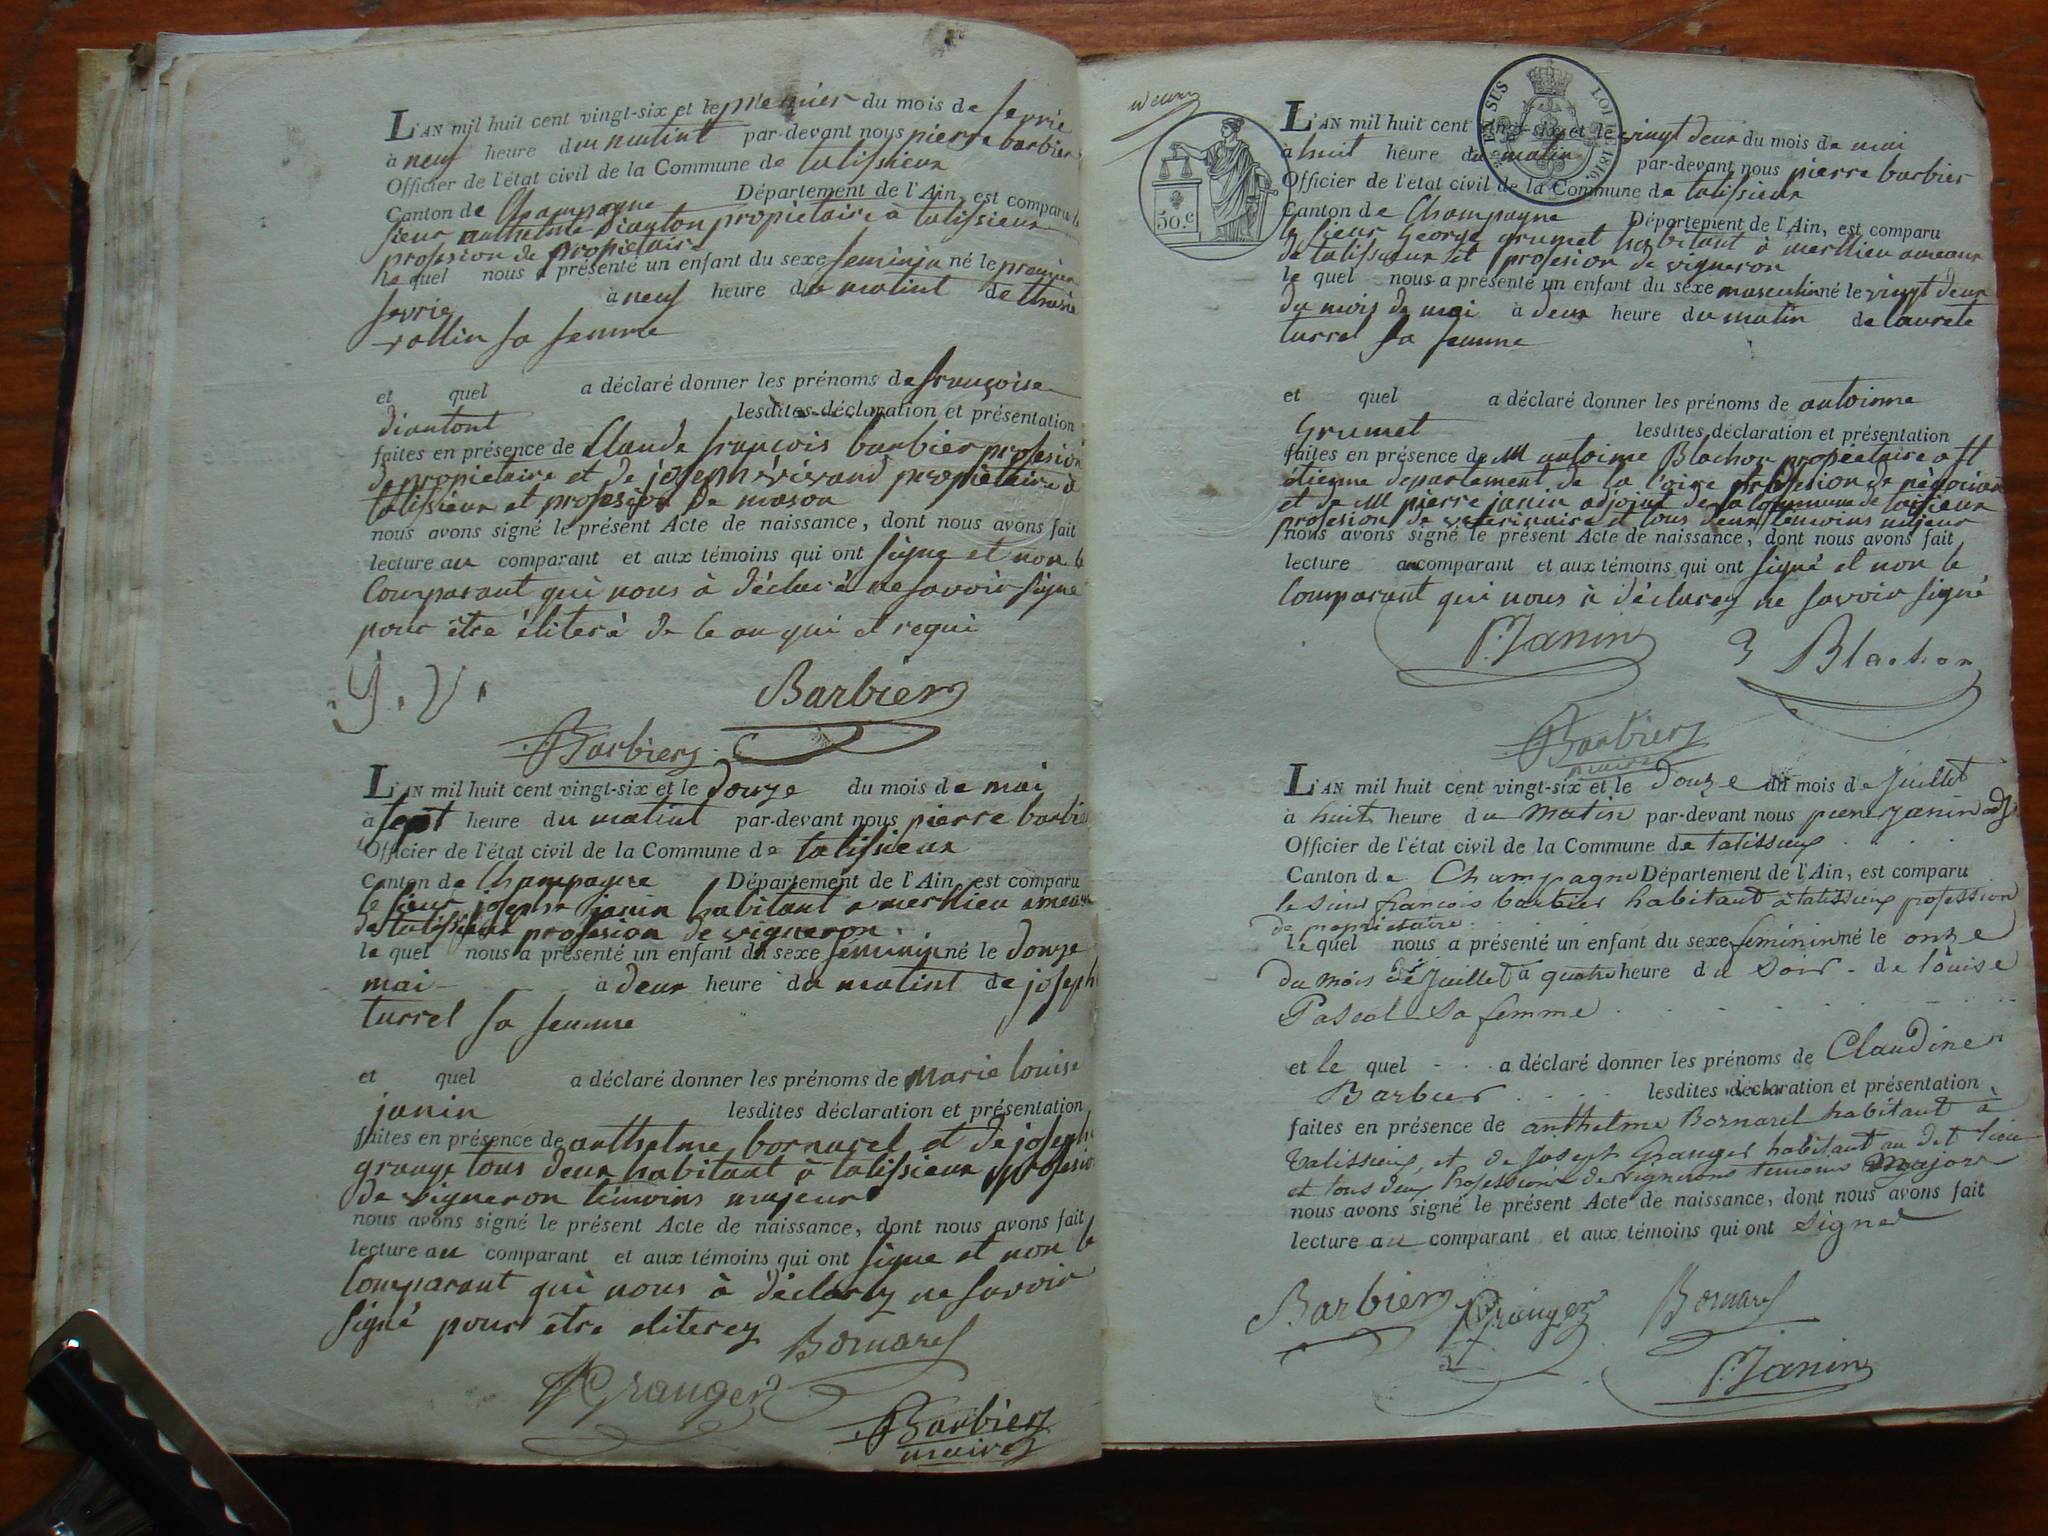 L'AN mil huit cent vingt-six et le premier du mois de fevrie
à neuf heure du matint par-devant nous pierre barbier
Officier de l'état civil de la Commune de talissieux
Canton de Champagne Département de l'Ain, est comparu le
sieur anthelme Dianton propietaire à talissieux
profesion de propietaire
le quel nous a présenté un enfant du sexe feminin né le premier
fevrie à neuf heure du matint de
rollin sa femme
et quel a déclaré donner les prénoms de françoise
diantont lesdites déclaration et présentation
faites en présence de Claude françois barbier profesion
de propietaire et de joseph vivand propietaire à
talissieux et profesion de mason
nous avons signé le présent Acte de naissance, dont nous avons fait
lecture au comparant et aux témoins qui ont signe et non le
Comparant qui nous à déclaré ne savoir signe
pour être éliterà de ce au qui el requi
J. V.
Barbier
Barbier
L'AN mil huit cent vingt-six et le douze du mois de mai
à sept heure du matint par-devant nous pierre barbier
Officier de l'état civil de la Commune de talissieux
Canton de Champagne Département de l'Ain, est comparu
le sieur joseph janin habitant a merlieu ameaux
de talissieux profesion de vigneron
le quel nous a présenté un enfant du sexe feminin né le douze
mai à deux heure du matint de joseph
turrel sa femme
et quel a déclaré donner les prénoms de marie louise
janin lesdites déclaration et présentation
faites en présence de anthelme bornarel et de joseph
grange tous deux habitant à talissieux profesion
de vigneron témoins majeur
nous avons signé le présent Acte de naissance, dont nous avons fait
lecture au comparant et aux témoins qui ont signe et non le
Comparant qui nous à déclarez ne savoir
signé pour être eliterez
Bornarel
Granger
Barbier
maire
50.c
L'AN mil huit cent vingt-six et le vingt deux du mois de mai
à huit heure du matin par-devant nous pierre barbier
Officier de l'état civil de la Commune de talissieux
Canton de Champagne Département de l'Ain, est comparu
le sieur George grumet habitant à merlieu ameaux
de talissieux et profesion de vigneron
le quel nous a présenté un enfant du sexe masculin né le vingt deux
du mois de mai à deux heure du matin de laurete
turrel sa femme
et quel a déclaré donner les prénoms de antoinne
Grumet lesdites déclaration et présentation
faites en présence de M antoinne Blachon propietaire a St
étienne departement de la loire profesion de négociant
et de M pierre janin adjoint de la Commune de talissieux
profesion de veterinaire et tous deux témoins majeur
nous avons signé le présent Acte de naissance, dont nous avons fait
lecture au comparant et aux témoins qui ont signé et non le
Comparant qui nous à déclarez ne savoir signé
P. Janin
Blachon
Barbier
maire
L'AN mil huit cent vingt-six et le douze du mois de juillet
à huit heure du matin par-devant nous pierre janin adj
Officier de l'état civil de la Commune de talissieux
Canton de Champagne Département de l'Ain, est comparu
le sieur francois barbier habitant à talissieux profession
de propriétaire
le quel nous a présenté un enfant du sexe féminin né le onze
du mois de juillet à quatre heure du soir de louise
Pascal sa femme
et le quel a déclaré donner les prénoms de Claudine
Barbier lesdites déclaration et présentation
faites en présence de anthelme Bornarel habitant à
talissieux, et de Joseph Granger habitant au dit lieu
et tous deux profession de vignerons temoins majors
nous avons signé le présent Acte de naissance, dont nous avons fait
lecture au comparant et aux témoins qui ont signé
Barbier
Granger
Bornarel
P. Janin